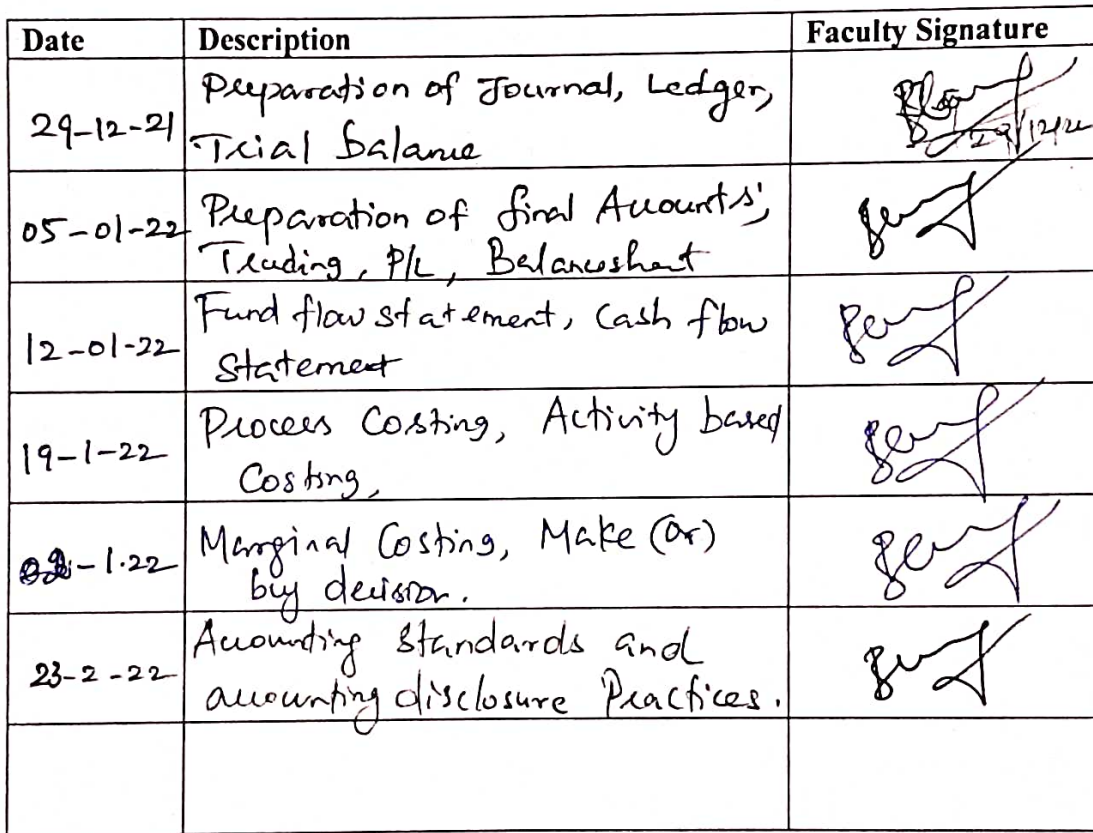 Date Description Faculty Signature
29-12-21 Preparation of Journal, Ledger,
Trial balance
05-01-22 Preparation of final Accounts;
Trading, P/L, Balancesheet
12-01-22 Fund flow statement, Cash flow
Statement
19-1-22 Process Costing, Activity based
Costing,
-1.22 Marginal Costing, Make (or)
buy decision.
23-2-22 Accounting Standards and
accounting disclosure Practices.